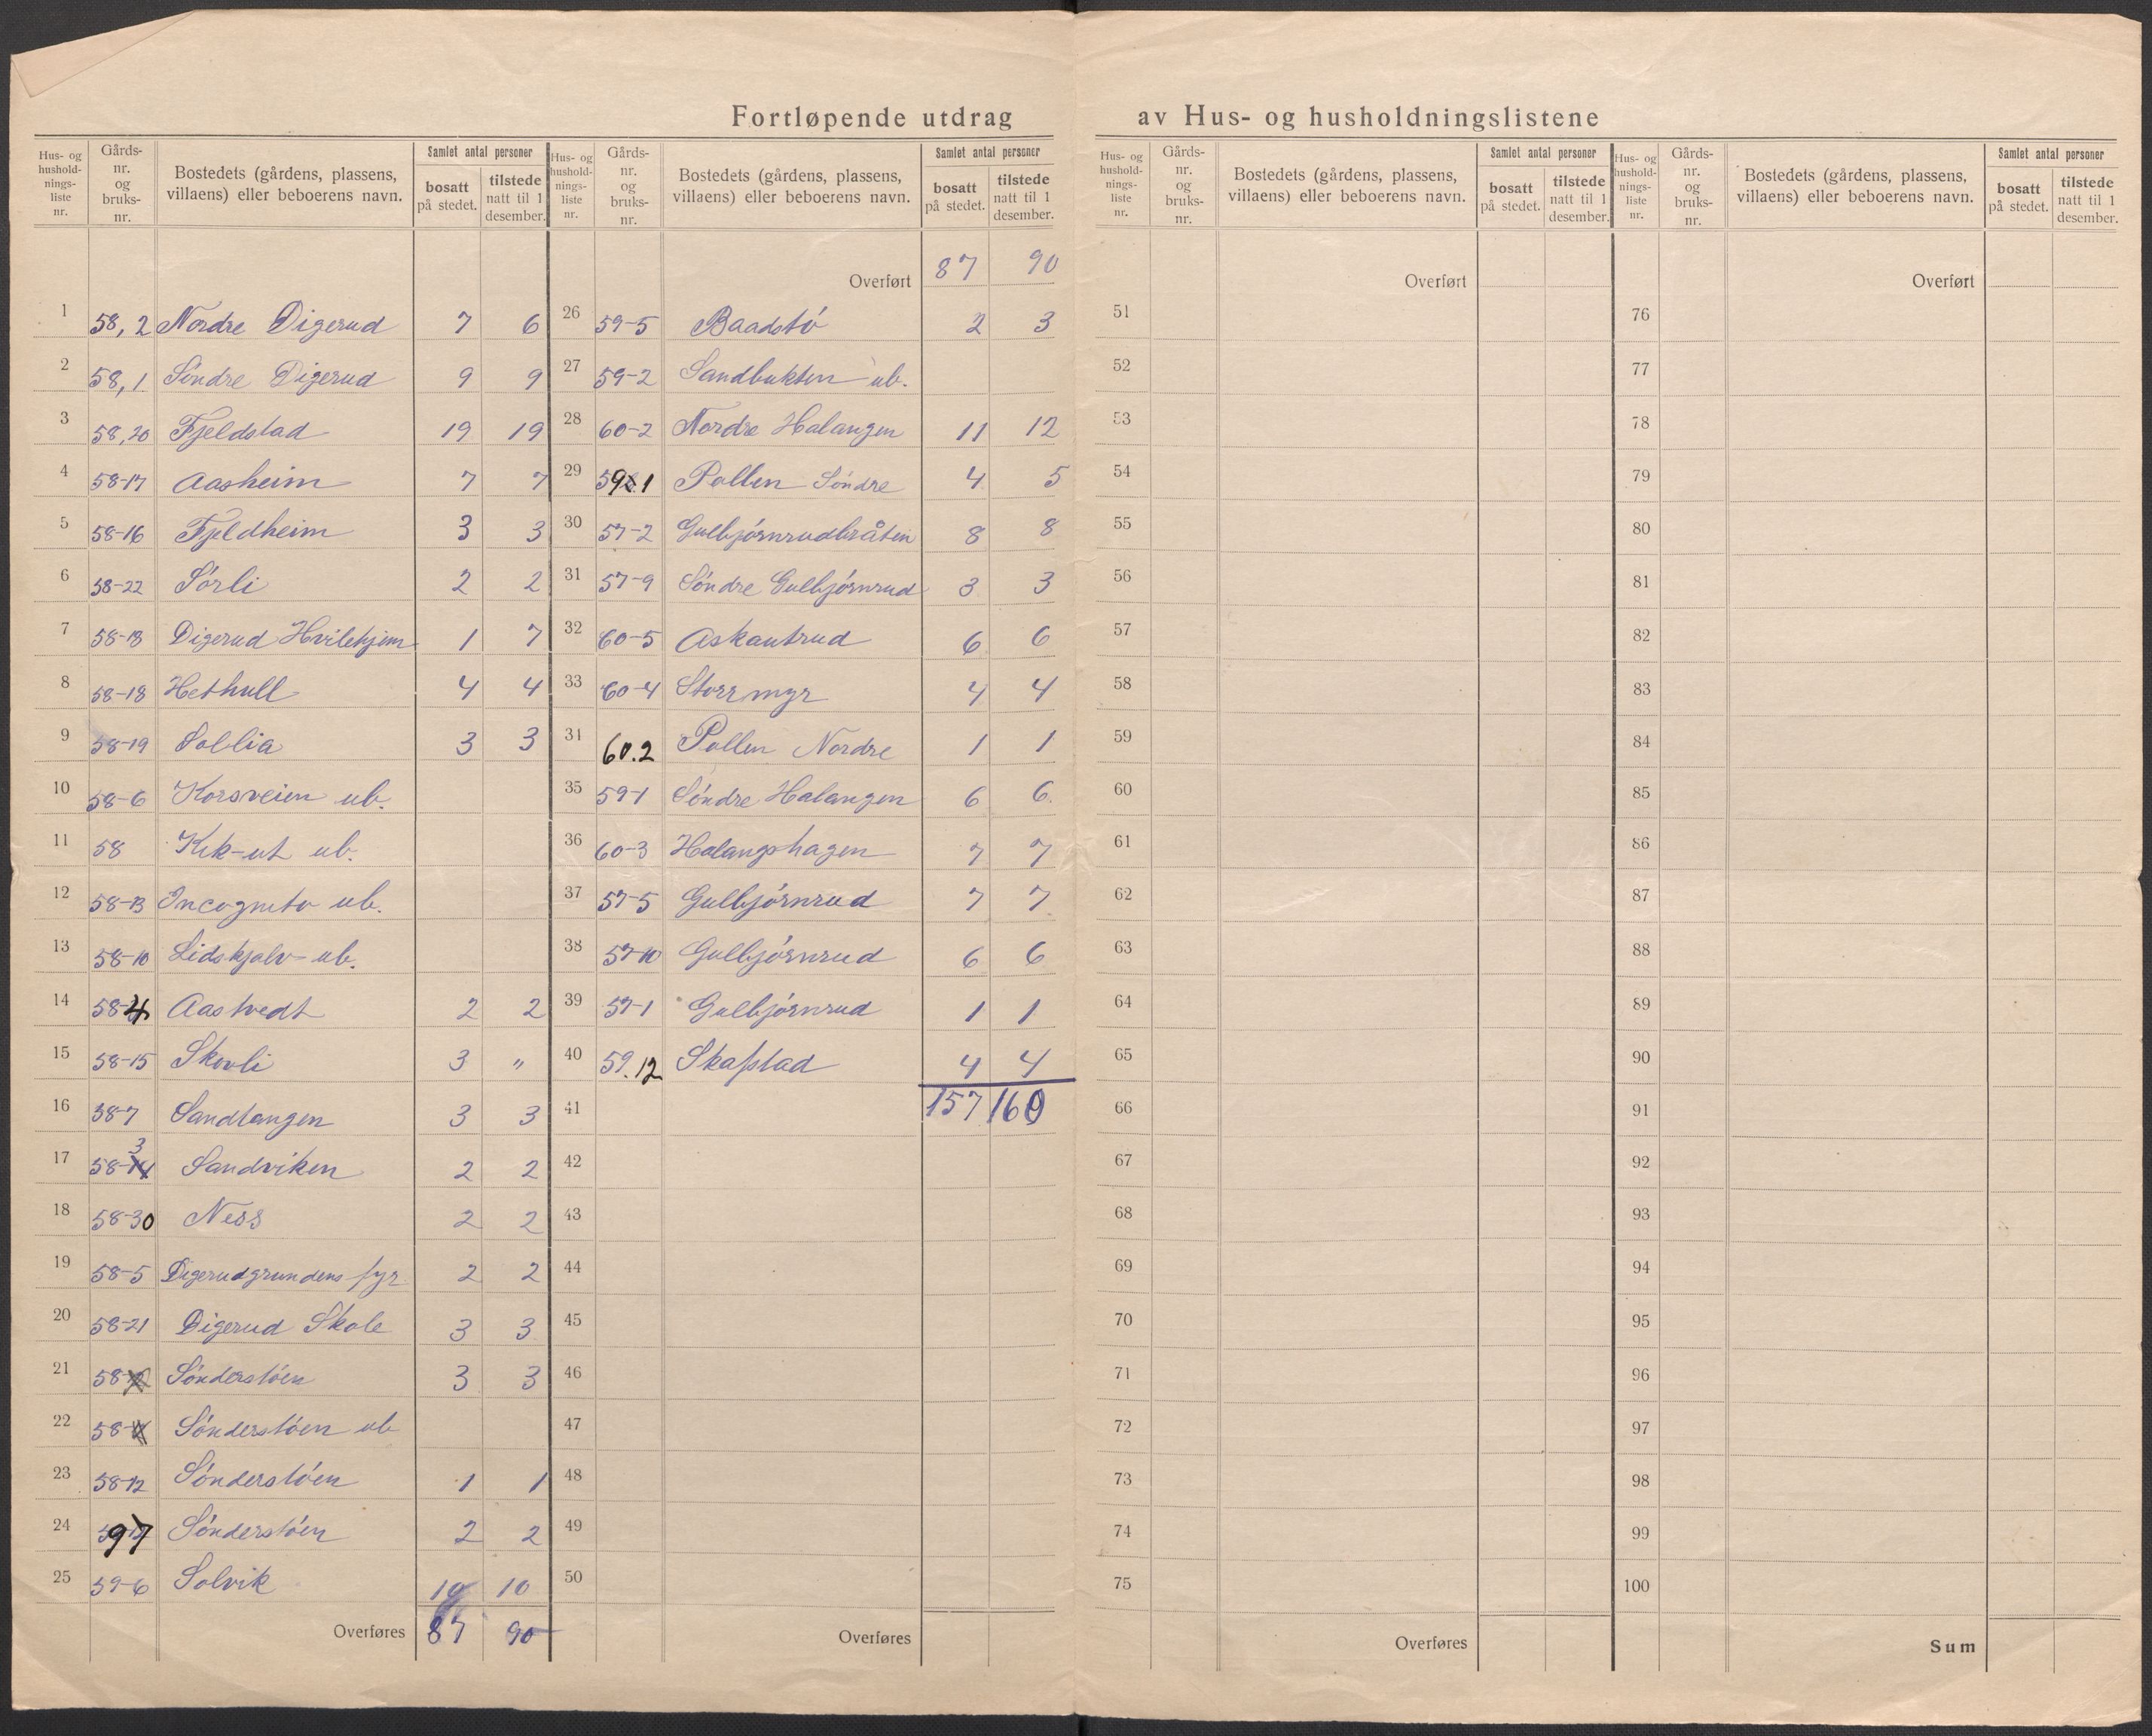 Fortløpende utdrag av Hus- og husholdningslistene
Hus- og husholdnings-liste nr. | Gårds-nr. og bruks-nr. | Bostedets (gårdens, plassens, villaens) eller beboerens navn. | Samlet antal personer | bosatt på stedet. | tilstede natt til 1 desember.
1 58, 2 Nordre Digerud 7 6
2 58, 1 Söndre Digerud 9 9
3 58, 20 Fjeldstad 19 19
4 58-17 Aasheim 7 7
5 58-16 Fjeldheim 3 3
6 58-22 Sörli 2 2
7 58-13 Digerud Hvilehjem 1 7
8 58-18 Hethull 4 4
9 58-19 Sollia 3 3
10 58-6 Korsveien ub.
11 58 Kik-ut ub.
12 58-13 Incognito ub.
13 58-10 Lidskjalv ub.
14 58-4 Aastvedt 2 2
15 58-15 Skovli 3 "
16 58-7 Sandtangen 3 3
17 58-3 Sandviken 2 2
18 58-30 Ness 2 2
19 58-5 Digerudgrundens fyr 2 2
20 58-21 Digerud Skole 3 3
21 58- Sönderstöen 3 3
22 58- Sönderstöen ub
23 58-12 Sönderstöen 1 1
24 Sönderstöen 2 2
25 59-6 Solvik 10 10
Overføres 87 90
Hus- og husholdnings-liste nr. | Gårds-nr. og bruks-nr. | Bostedets (gårdens, plassens, villaens) eller beboerens navn. | Samlet antal personer | bosatt på stedet. | tilstede natt til 1 desember.
Overført 87 90
26 59-5 Baadstö 2 3
27 59-2 Sandbukten ub.
28 60-2 Nordre Halangen 11 12
29 59 1 Pollen Söndre 4 5
30 57-2 Gulbjörnrudbråten 8 8
31 57-9 Söndre Gulbjörnrud 3 3
32 60-5 Askautrud 6 6
33 60-4 Storrmyr 4 4
31 60.2 Pollen Nordre 1 1
35 59-1 Söndre Halangen 6 6.
36 60-3 Halangshagen 7 7
37 57-5 Gulbjörnrud 7 7
38 57-10 Gulbjörnrud 6 6
39 57-1 Gulbjörnrud 1 1
40 59.12 Skafstad 4 4
41 157 160
42
43
44
45
46
47
48
49
50
Overføres
Hus- og husholdnings-liste nr. | Gårds-nr. og bruks-nr. | Bostedets (gårdens, plassens, villaens) eller beboerens navn. | Samlet antal personer | bosatt på stedet. | tilstede natt til 1 desember.
Overført
51
52
53
54
55
56
57
58
59
60
61
62
63
64
65
66
67
68
69
70
71
72
73
74
75
Overføres
Hus- og husholdnings-liste nr. | Gårds-nr. og bruks-nr. | Bostedets (gårdens, plassens, villaens) eller beboerens navn. | Samlet antal personer | bosatt på stedet. | tilstede natt til 1 desember.
Overført
76
77
78
79
80
81
82
83
84
85
86
87
88
89
90
91
92
93
94
95
96
97
98
99
100
Sum